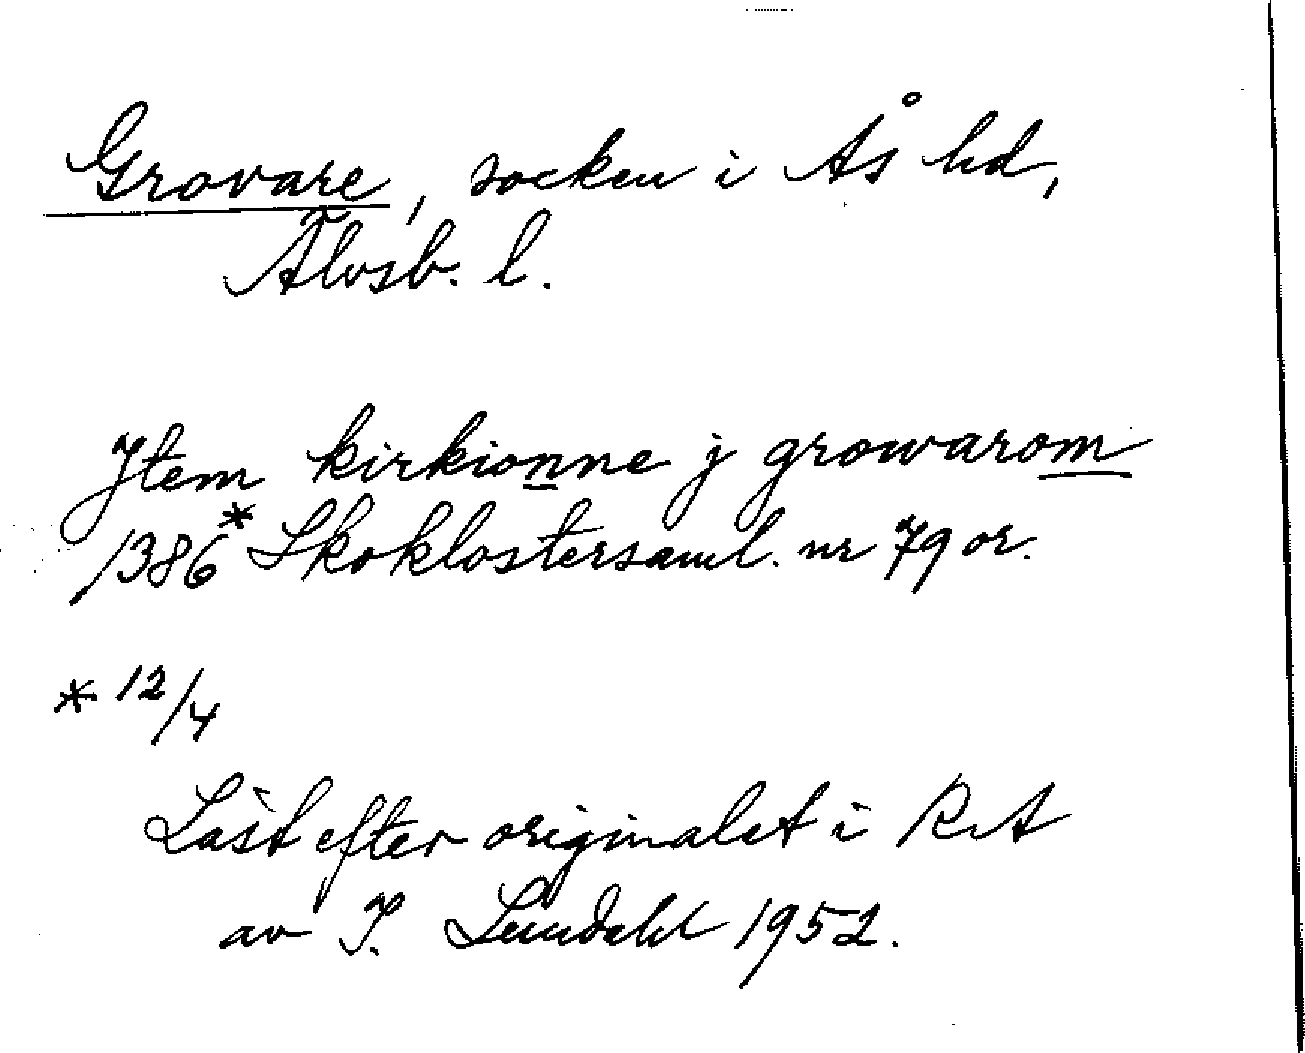 Grovare, socken i Ås hd,
Älvsb. l.
Jtem kirkionne j growarom
1386* Skoklostersaml. nr 79 or.
* 12/4
Läst efter originalet i RA
av I. Lundahl 1952.